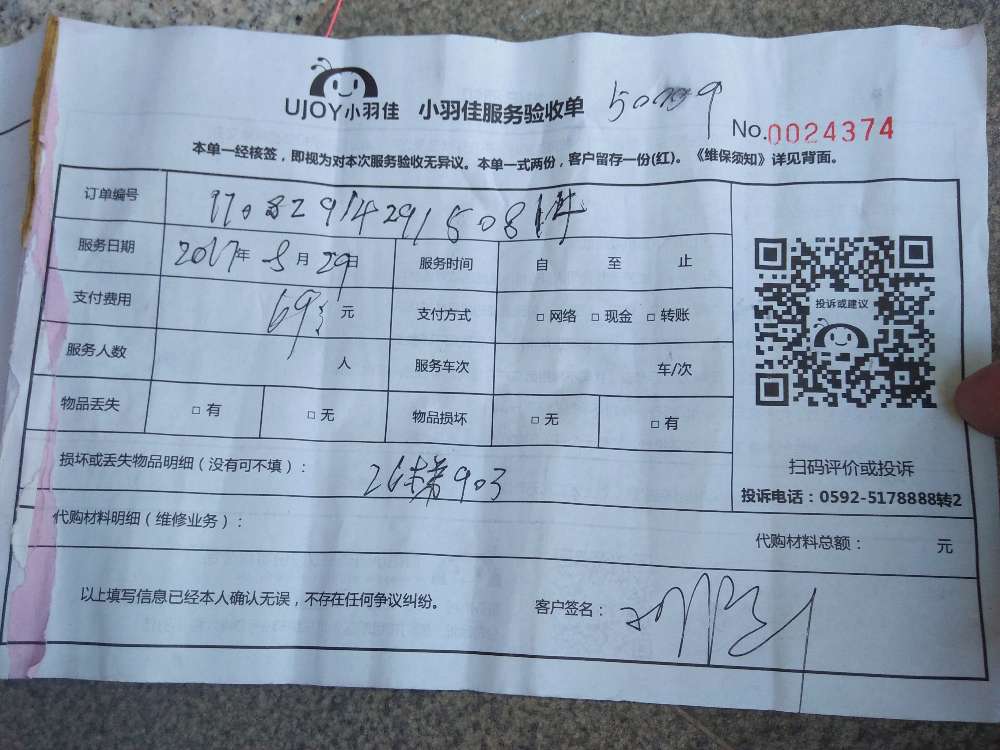 UJOY小羽佳 小羽佳服务验收单
No.0024374
本单一经核签，即视为对本次服务验收无异议。本单一式两份，客户留存一份(红)。《维保须知》详见背面。
订单编号
服务日期 2017年 8月 29日 服务时间 自 至 止
支付费用 69 元 支付方式 □ 网络 □ 现金 □ 转账
服务人数 人 服务车次 车/次
物品丢失 □ 有 □ 无 物品损坏 □ 无 □ 有
投诉或建议
扫码评价或投诉
投诉电话：0592-5178888转2
损坏或丢失物品明细（没有可不填）： 903
代购材料明细（维修业务）： 代购材料总额： 元
以上填写信息已经本人确认无误，不存在任何争议纠纷。 客户签名：